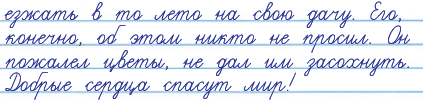 езжать в то лето на свою дачу. Его,
конечно, об этом никто не просил. Он
пожалел цветы, не дал им засохнуть.
Добрые сердца спасут мир!